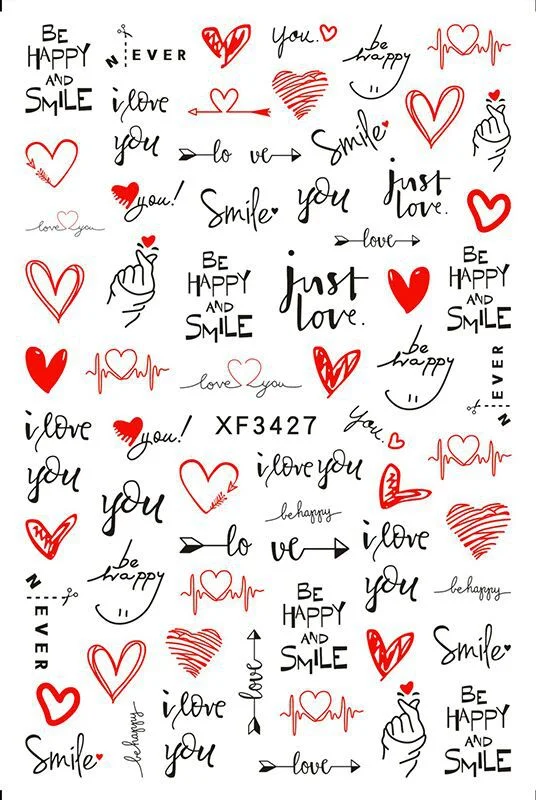 BE
HAPPY
AND
SMILE
NEVER
you.
be
happy
i love
you
lo ve
Smile
you!
Smile
you
just
love.
love you
love
BE
HAPPY
AND
SMILE
just
love.
BE
HAPPY
AND
SMILE
love you
be
happy
NEVER
i love
you
you!
XF3427
you.
i love you
you
be happy
lo ve
i love
you
be
happy
be happy
NEVER
BE
HAPPY
AND
SMILE
Smile
love
i love
you
be happy
Smile
love
BE
HAPPY
AND
SMILE